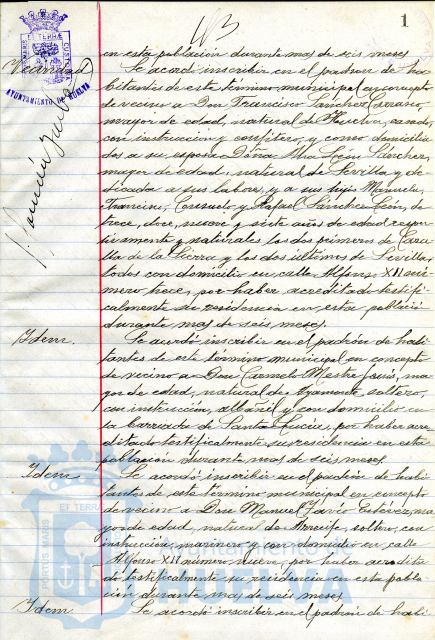 1
en esta población durante mas de seis meses
Vecindad Se acordó inscribir en el padrón de ha-
bitantes de este término municipal en concepto
de vecino a Don Francisco Sánchez
mayor de edad, natural de Huelva, casado,
con instrucción y confitero, y como domicilia
dos a su esposa Dña. León Sánchez,
mayor de edad, natural de Sevilla y de-
dicada a sus labores, y a sus hijos Manuela,
Francisco, Consuelo y Rafael Sánchez León, de
trece, doce, nueve y siete años de edad respec-
tivamente y naturales los dos primeros de
de la Sierra y los dos últimos de Sevilla,
todos con domicilio en calle Alfonso XII nú-
mero trece, por haber acreditado testifi-
calmente su residencia en esta población
durante mas de seis meses.
Idem. Se acordó inscribir en el padrón de habi-
tantes de este término municipal en concepto
de vecino a Don Carmelo Mestre Jesús, ma-
yor de edad, natural de Ayamonte, soltero,
con instrucción, albañil y con domicilio en
la barriada de Santa Lucía, por haber acre
ditado testificalmente su residencia en esta
población durante mas de seis meses.
Idem. Se acordó inscribir en el padrón de habi-
tantes de este término municipal en concepto
de vecino a Don Manuel Estévez, ma-
yor de edad, natural de soltero, con
instrucción, marinero y con domicilio en calle
Alfonso XII número nueve, por haber acredita
do testificalmente su residencia en esta pobla-
ción durante mas de seis meses
Idem Se acordó inscribir en el padrón de habi-
AYUNTAMIENTO DE HUELVA
PORTUS MARIS
ET TERRAE
CUSTODIA
Ayuntamiento de
HUELVA